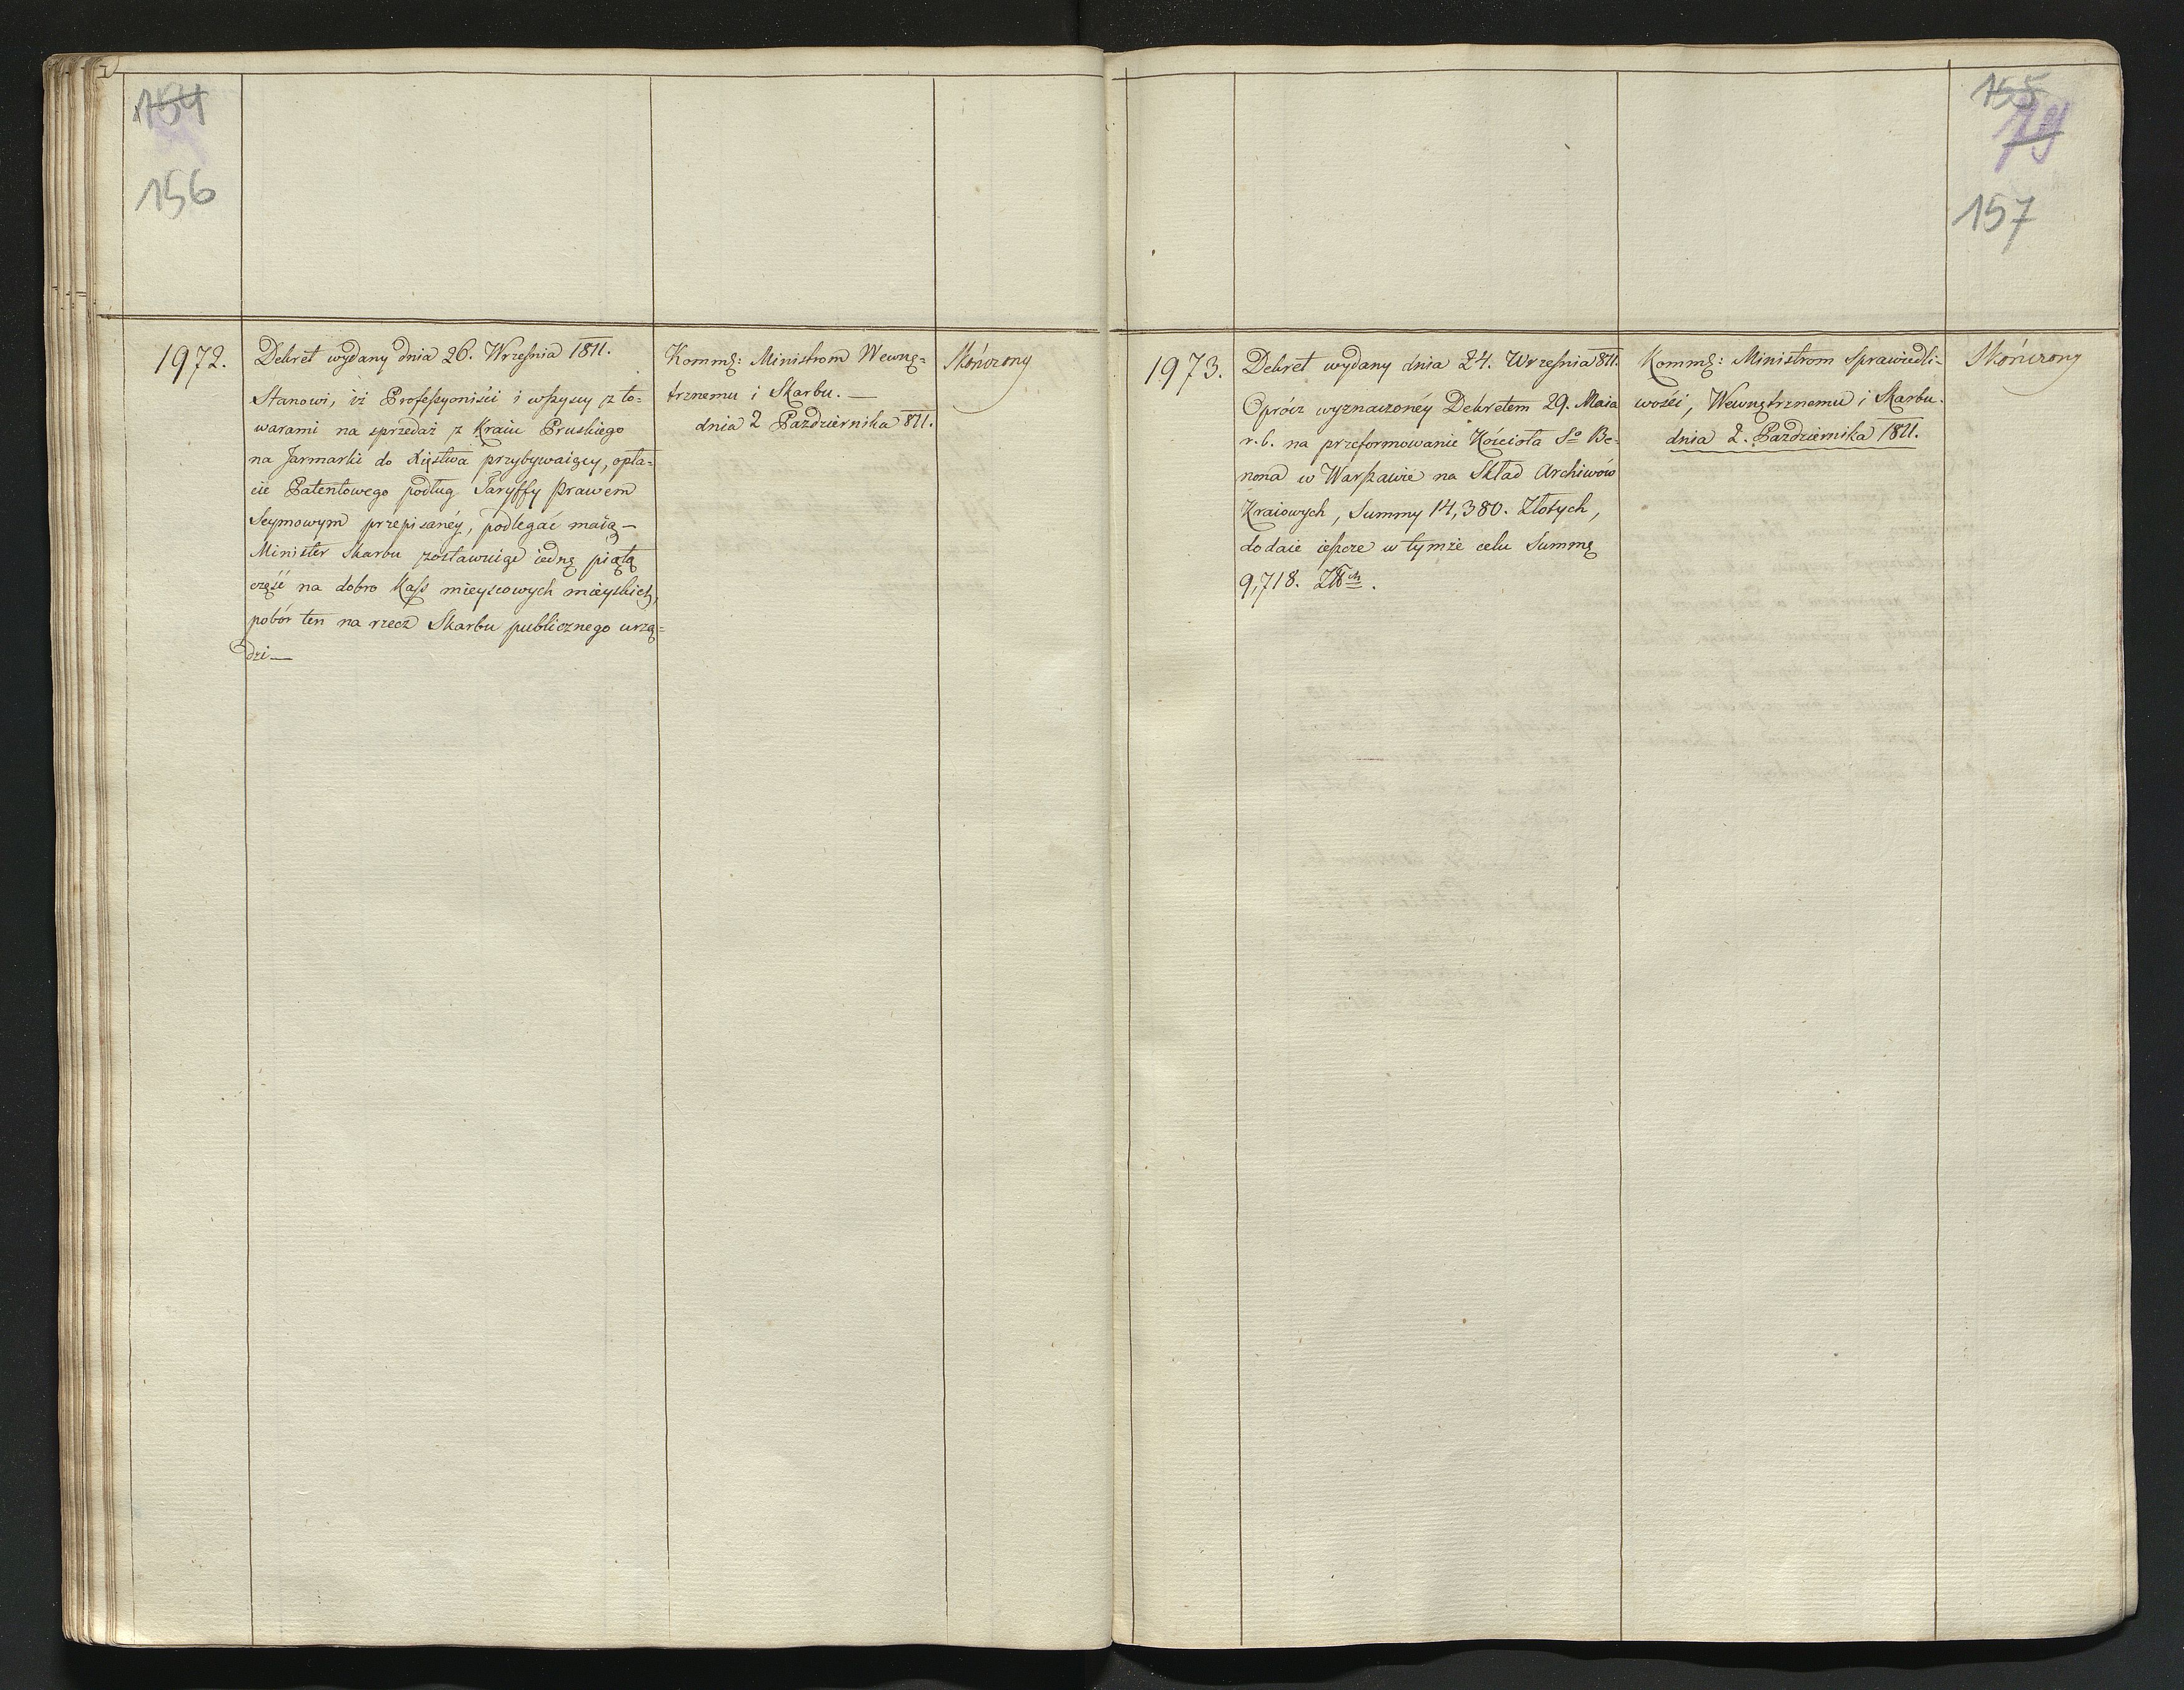 154
156
1972.
Dekret wydany dnia 26. Września 1811.
Stanowi, iż Professyoniści i wszyscy z to=
warami na sprzedaż z Kraiu Pruskiego
na Jarmarki do Xięstwa przybywaiący, opła=
cie Patentowego podług Taryffy Prawem
Seymowym przepisanéy, podlegać maią —
Minister Skarbu zostawuiąc iedną piątą
część na dobro Kass mieyscowych mieyskich,
pobór ten na rzecz Skarbu publicznego urzą=
dzi —
Kommę: Ministrom Wewnę=
trznemu i Skarbu. —
dnia 2 Października 811.
Skończony
155
79
157
1973.
Dekret wydany dnia 24. Września 811.
Oprócz wyznaczonéy Dekretem 29. Maia
r. b. na przeformowanie Kościoła So Be=
nona w Warszawie na Skład Archiwów
Kraiowych, Summy 14,380. Złotych,
dodaie ieszcze w tymże celu Summę
9,718. Złch.
Kommę: Ministrom Sprawiedli=
wości, Wewnętrznemu i Skarbu.
dnia 2. Października 1811.
Skończony